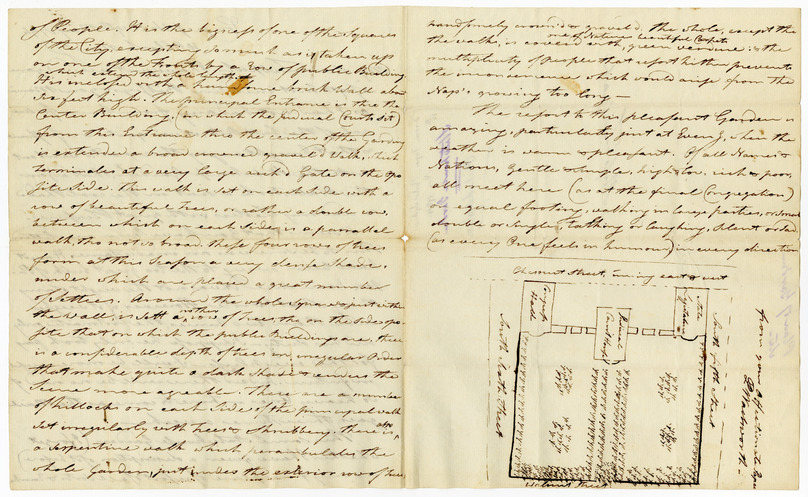 of People. It is the bigness of one of the Squares
of the City, excepting so much as is taken up
on one of the Fronts by a row of public Buildings
which extend the whole length
It is inclosed with a handsome brick Wall about
six feet high. The principal Entrance is thro the
Center Building, (in which the judicial Courts sit)
from this Entrance thro the center of the Garden
is extended a broad crowned gravel'd Walk, which
terminates at a very large arch'd Gate on the opo-
site side. this walk is set on each side with a
row of beautiful trees, or rather a double row,
between which on each side is a parrallel
walk, tho not so broad. these four rows of trees
form at this season a very dense shade,
under which are placed a great number
of Settees. Around the whole square just within
the Wall, is sett another row of trees, tho on the side opo-
site that on which the public buildings are, there
is a considerable depth of trees in irregular order
that make quite a dark shade & renders the
Scene more agreable. There are a number
of hillocks on each side of the principal walk
set irregularly with trees & shrubbery. there is also
a serpentine walk which perambulates the
whole Garden, just under the exterior row of trees
handsomely crown'd & gravel'd. The whole, except the
the walks, is covered with, one of Natures beautiful Carpets green verdure: & the
multiplicity of People that resort hither prevents
the inconvenience which would arise from the
Nap's growing too long —
The resort to this pleasant Garden is
amazing, particularly just at Eveng, when the
weather is warm & pleasant. Of all Names &
Nations, Gentle & simple, high & low, rich & poor,
all meet here (as at the final Congregation)
on equal footing, walking in large parties, or small
double or single, talking or laughing, silent or sded
(as every One feels in humour) in every direction
Chesnut Street, runing east & west
Congress Hall
Judicial Court House
State Legislature
South Sixth Street
South fifth Street
Walnut Street
from your affectionate
P Wadsworth